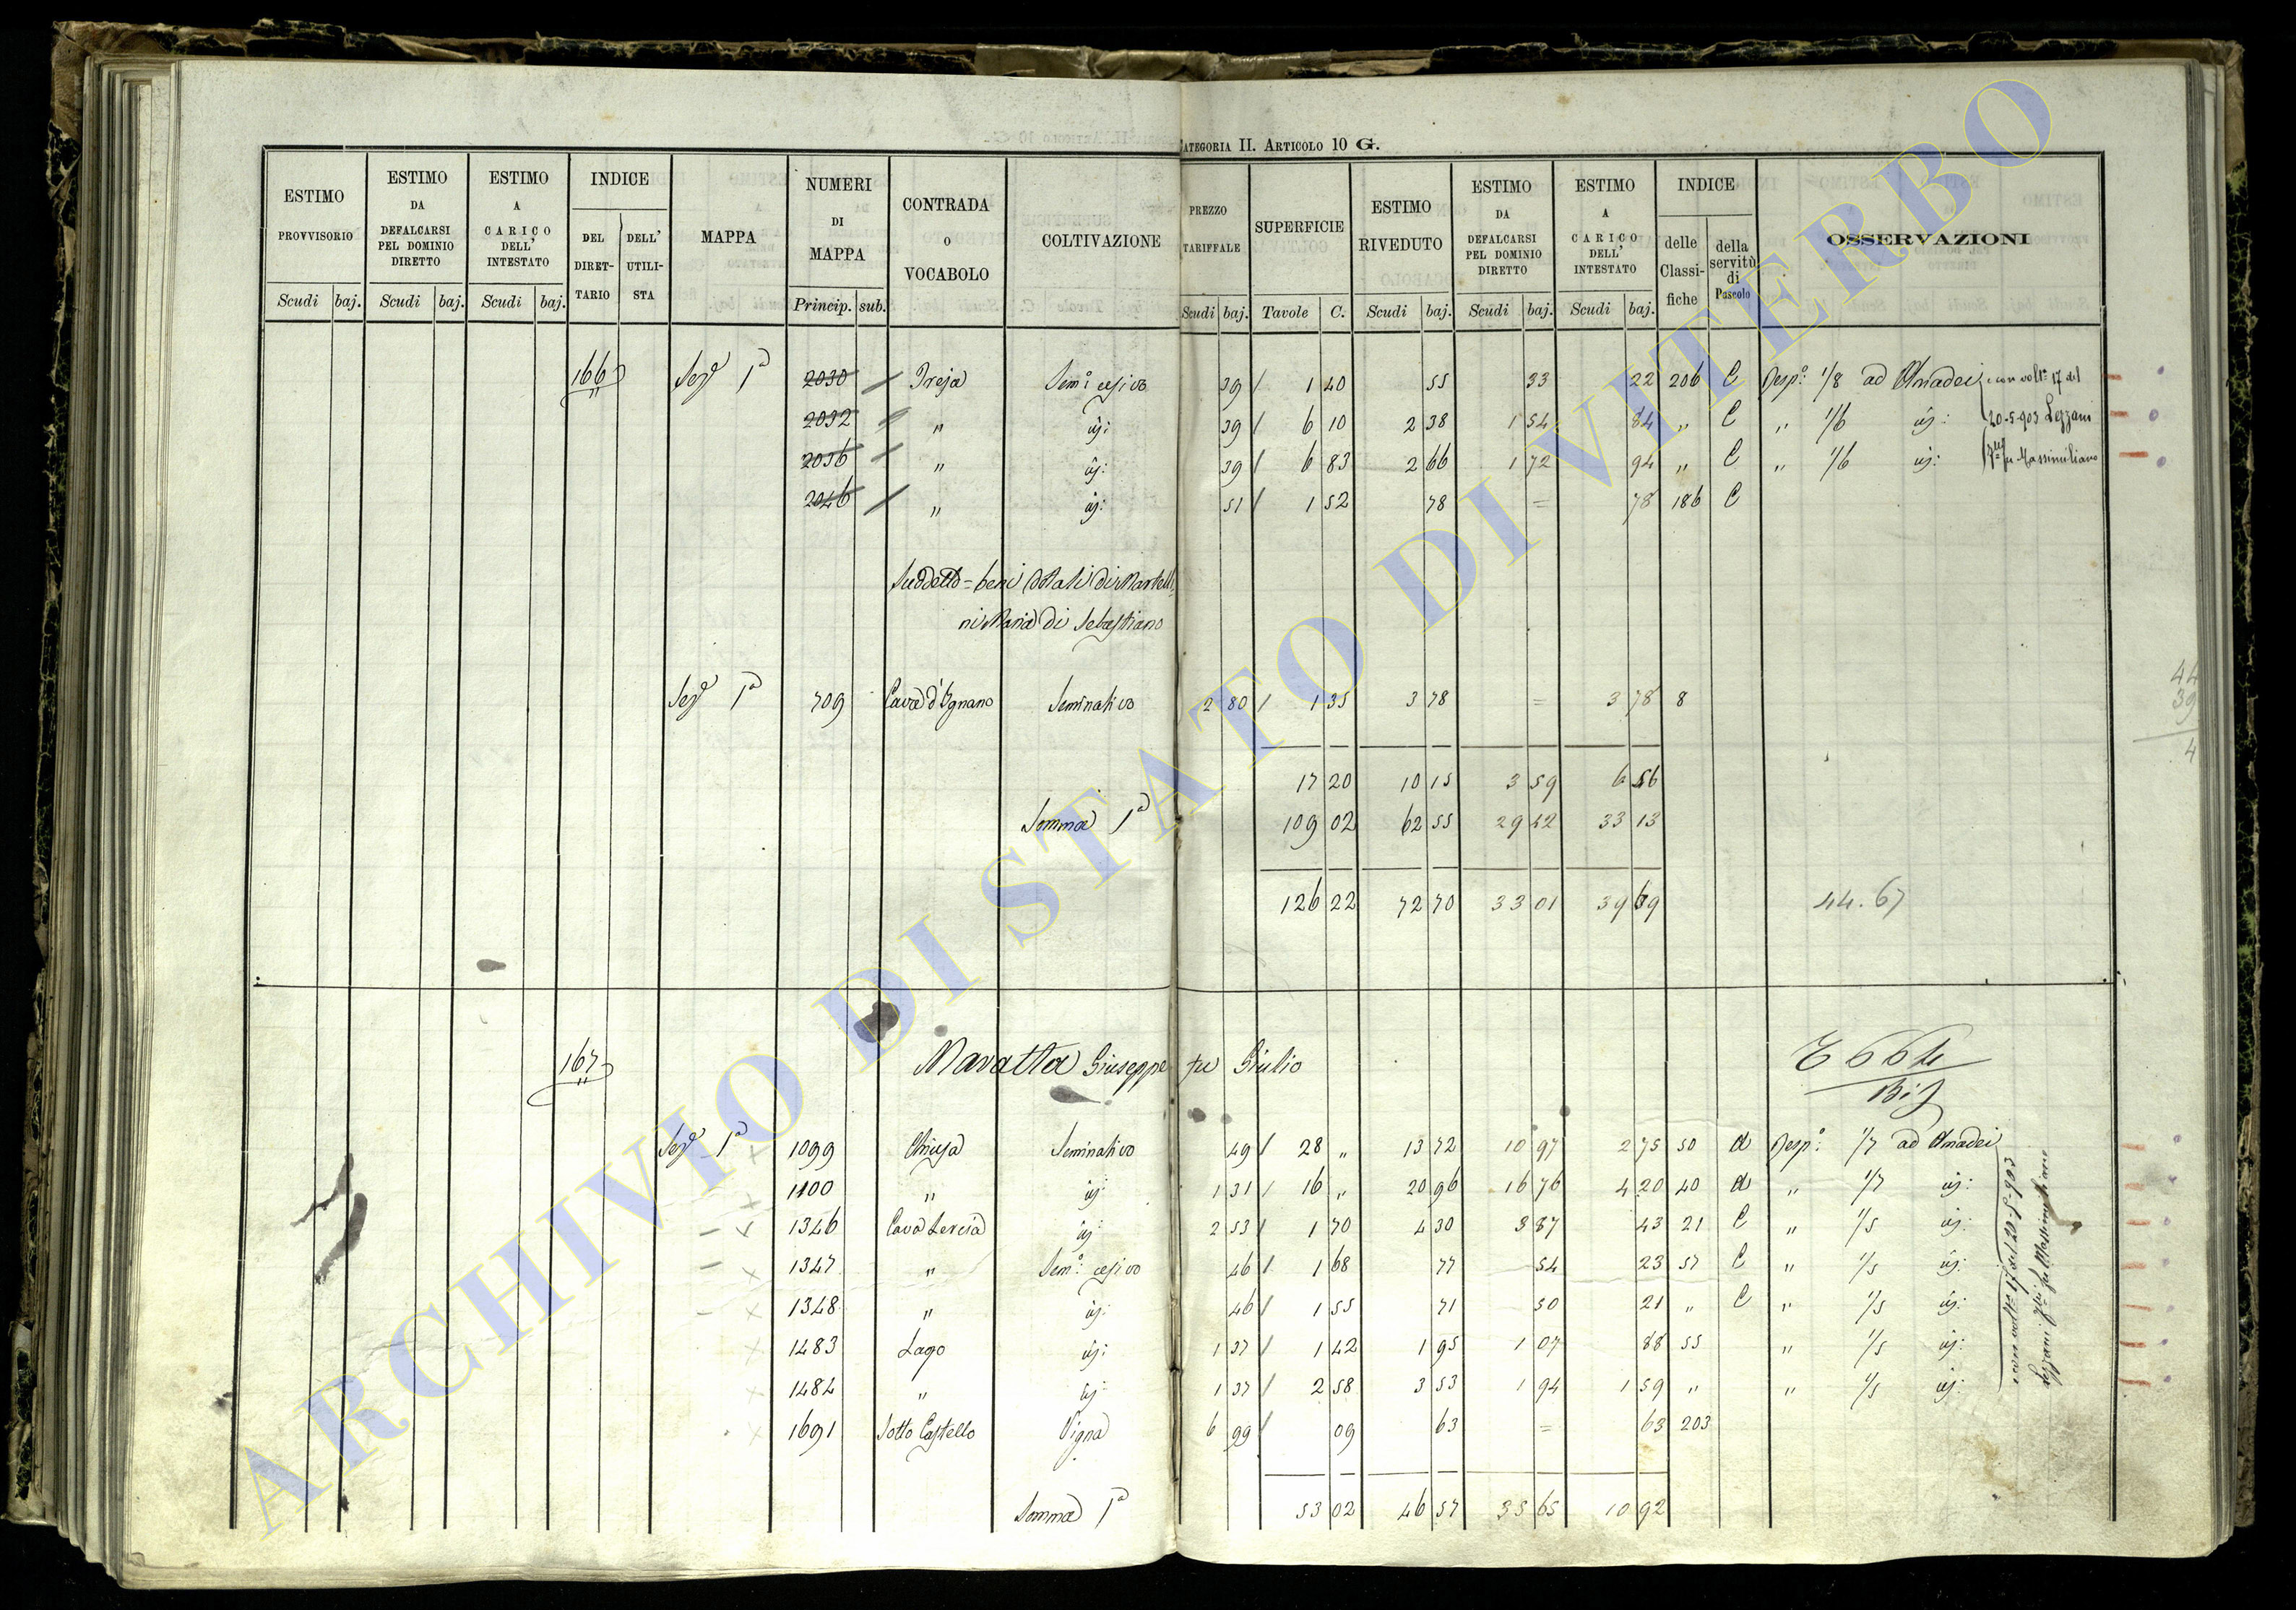 CATEGORIA II. ARTICOLO 10 G.
ESTIMO PROVVISORIO Scudi baj.
ESTIMO DA DEFALCARSI PEL DOMINIO DIRETTO Scudi baj.
ESTIMO A CARICO DELL' INTESTATO Scudi baj.
INDICE DEL DIRETTARIO DELL' UTILISTA
MAPPA
NUMERI DI MAPPA Princip. sub.
CONTRADA O VOCABOLO
COLTIVAZIONE
PREZZO TARIFFALE Scudi baj.
SUPERFICIE Tavole C.
ESTIMO RIVEDUTO Scudi baj.
ESTIMO DA DEFALCARSI PEL DOMINIO DIRETTO Scudi baj.
ESTIMO A CARICO DELL' INTESTATO Scudi baj.
INDICE delle Classifiche della servitù di Pascolo
OSSERVAZIONI
166 Sez.e 1a 2030 Treja Sem.o cesivo 39 1 40 55 33 22 206 C Resp.o 1/8 ad Amadei con volt.a 17 del
2032 " id: 39 6 10 2 38 1 54 84 " C " 1/6 id: 20-5-903 Lezzani
2036 " id: 39 6 83 2 66 1 72 94 " C " 1/6 id: fu Massimiliano
2046 " id: 51 1 52 78 = 78 186 C
Suddetto = beni dotali di Martelli
ni Maria di Sebastiano
Sez.e 1a 709 Cava d'Ignano Seminativo 2 80 1 35 3 78 = 3 78 8
17 20 10 15 3 59 6 56
Somma 1a 109 02 62 55 29 42 33 13
126 22 72 70 33 01 39 69 44.67
44
39
4
167 Mavatta Giuseppe fu Giulio
Sez.e 1a 1099 Chiesa Seminativo 49 28 " 13 72 10 97 2 75 50 d Resp.o 1/7 ad Amadei
1100 " id: 1 31 16 " 20 96 16 76 4 20 40 d " 1/7 id:
1346 Cava Lercia id: 2 53 1 70 4 30 3 87 43 21 C " 1/5 id:
1347 " Sem.o cesivo 46 1 68 77 54 23 57 C " 1/5 id:
1348 " id: 46 1 55 71 50 21 " C " 1/5 id:
1483 Lago id: 1 37 1 42 1 95 1 07 88 55 " 1/5 id:
1484 " id: 1 37 2 58 3 53 1 94 1 59 " " 1/5 id:
1691 Sotto Castello Vigna 6 99 09 63 = 63 203
con volt.a 17 del 20-5-903
Lezzani fu Massimiliano
Somma 1a 53 02 46 57 35 65 10 92
ARCHIVIO DI STATO DI VITERBO